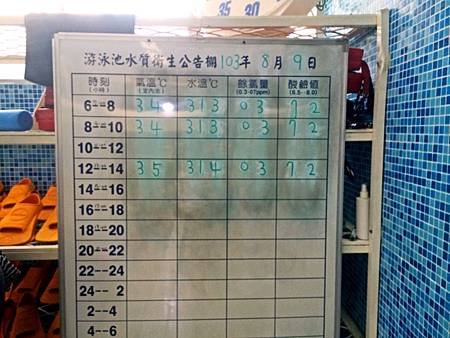 35 30
游泳池水質衛生公告欄 103年 8月 9日
時刻 氣溫℃ 水溫℃ 餘氯量 酸鹼值
(小時) (室內池) (0.3-07ppm) (6.5--8.0)
6--8 34 313 03 72
8--10 34 313 03 72
10--12
12--14 35 314 03 72
14--16
16--18
18--20
20--22
22--24
24--2
2--4
4--6